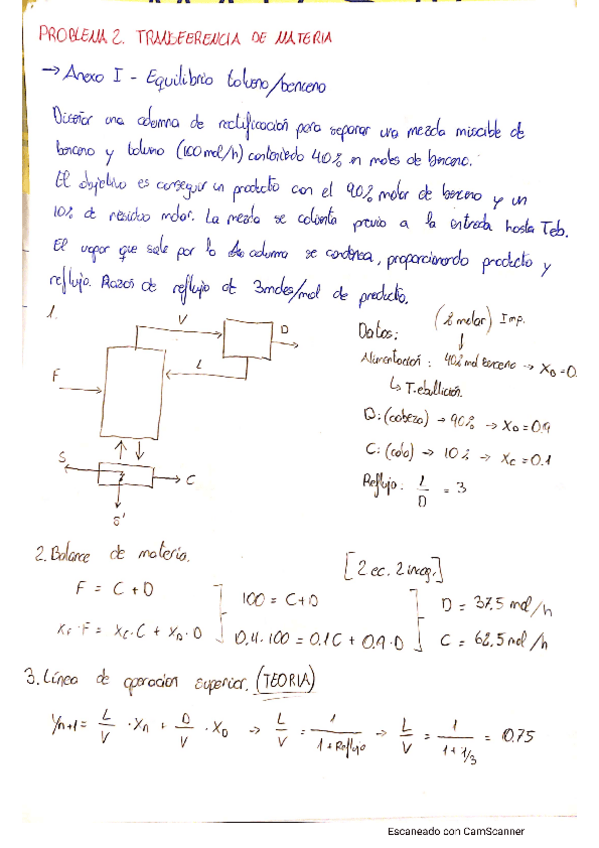 PROBLEMA 2. TRANSFERENCIA DE MATERIA
→ Anexo I - Equilibrio tolueno/benceno
Diseñar una columna de rectificación para separar una mezcla miscible de
benceno y tolueno (100 mol/h) conteniendo 40% en moles de benceno.
El objetivo es conseguir un producto con el 90% molar de benceno y un
10% de residuo molar. La mezcla se calienta previo a la entrada hasta Teb.
El vapor que sale por la columna se condensa, proporcionando producto y
reflujo. Razón de reflujo de 3 moles/mol de producto.
1.
V
D
L
F
S
C
S'
Datos: (% molar) Imp.
Alimentación: 40% mol benceno → X0 = 0.
↳ T. ebullición.
D: (cabeza) → 90% → XD = 0.9
C: (cola) → 10% → xC = 0.1
Reflujo: L/D = 3
2. Balance de materia.
[2 ec. 2 incog.]
F = C + D
100 = C + D
D = 37.5 mol/h
XF · F = XC · C + XD · D
0.4 · 100 = 0.1 C + 0.9 · D
C = 62.5 mol/h
3. Línea de operacion superior. (TEORIA)
Yn+1 = L/V · Xn + D/V · XD → L/V = 1/(1 + Reflujo) → L/V = 1/(1 + 1/3) = 0.75
Escaneado con CamScanner